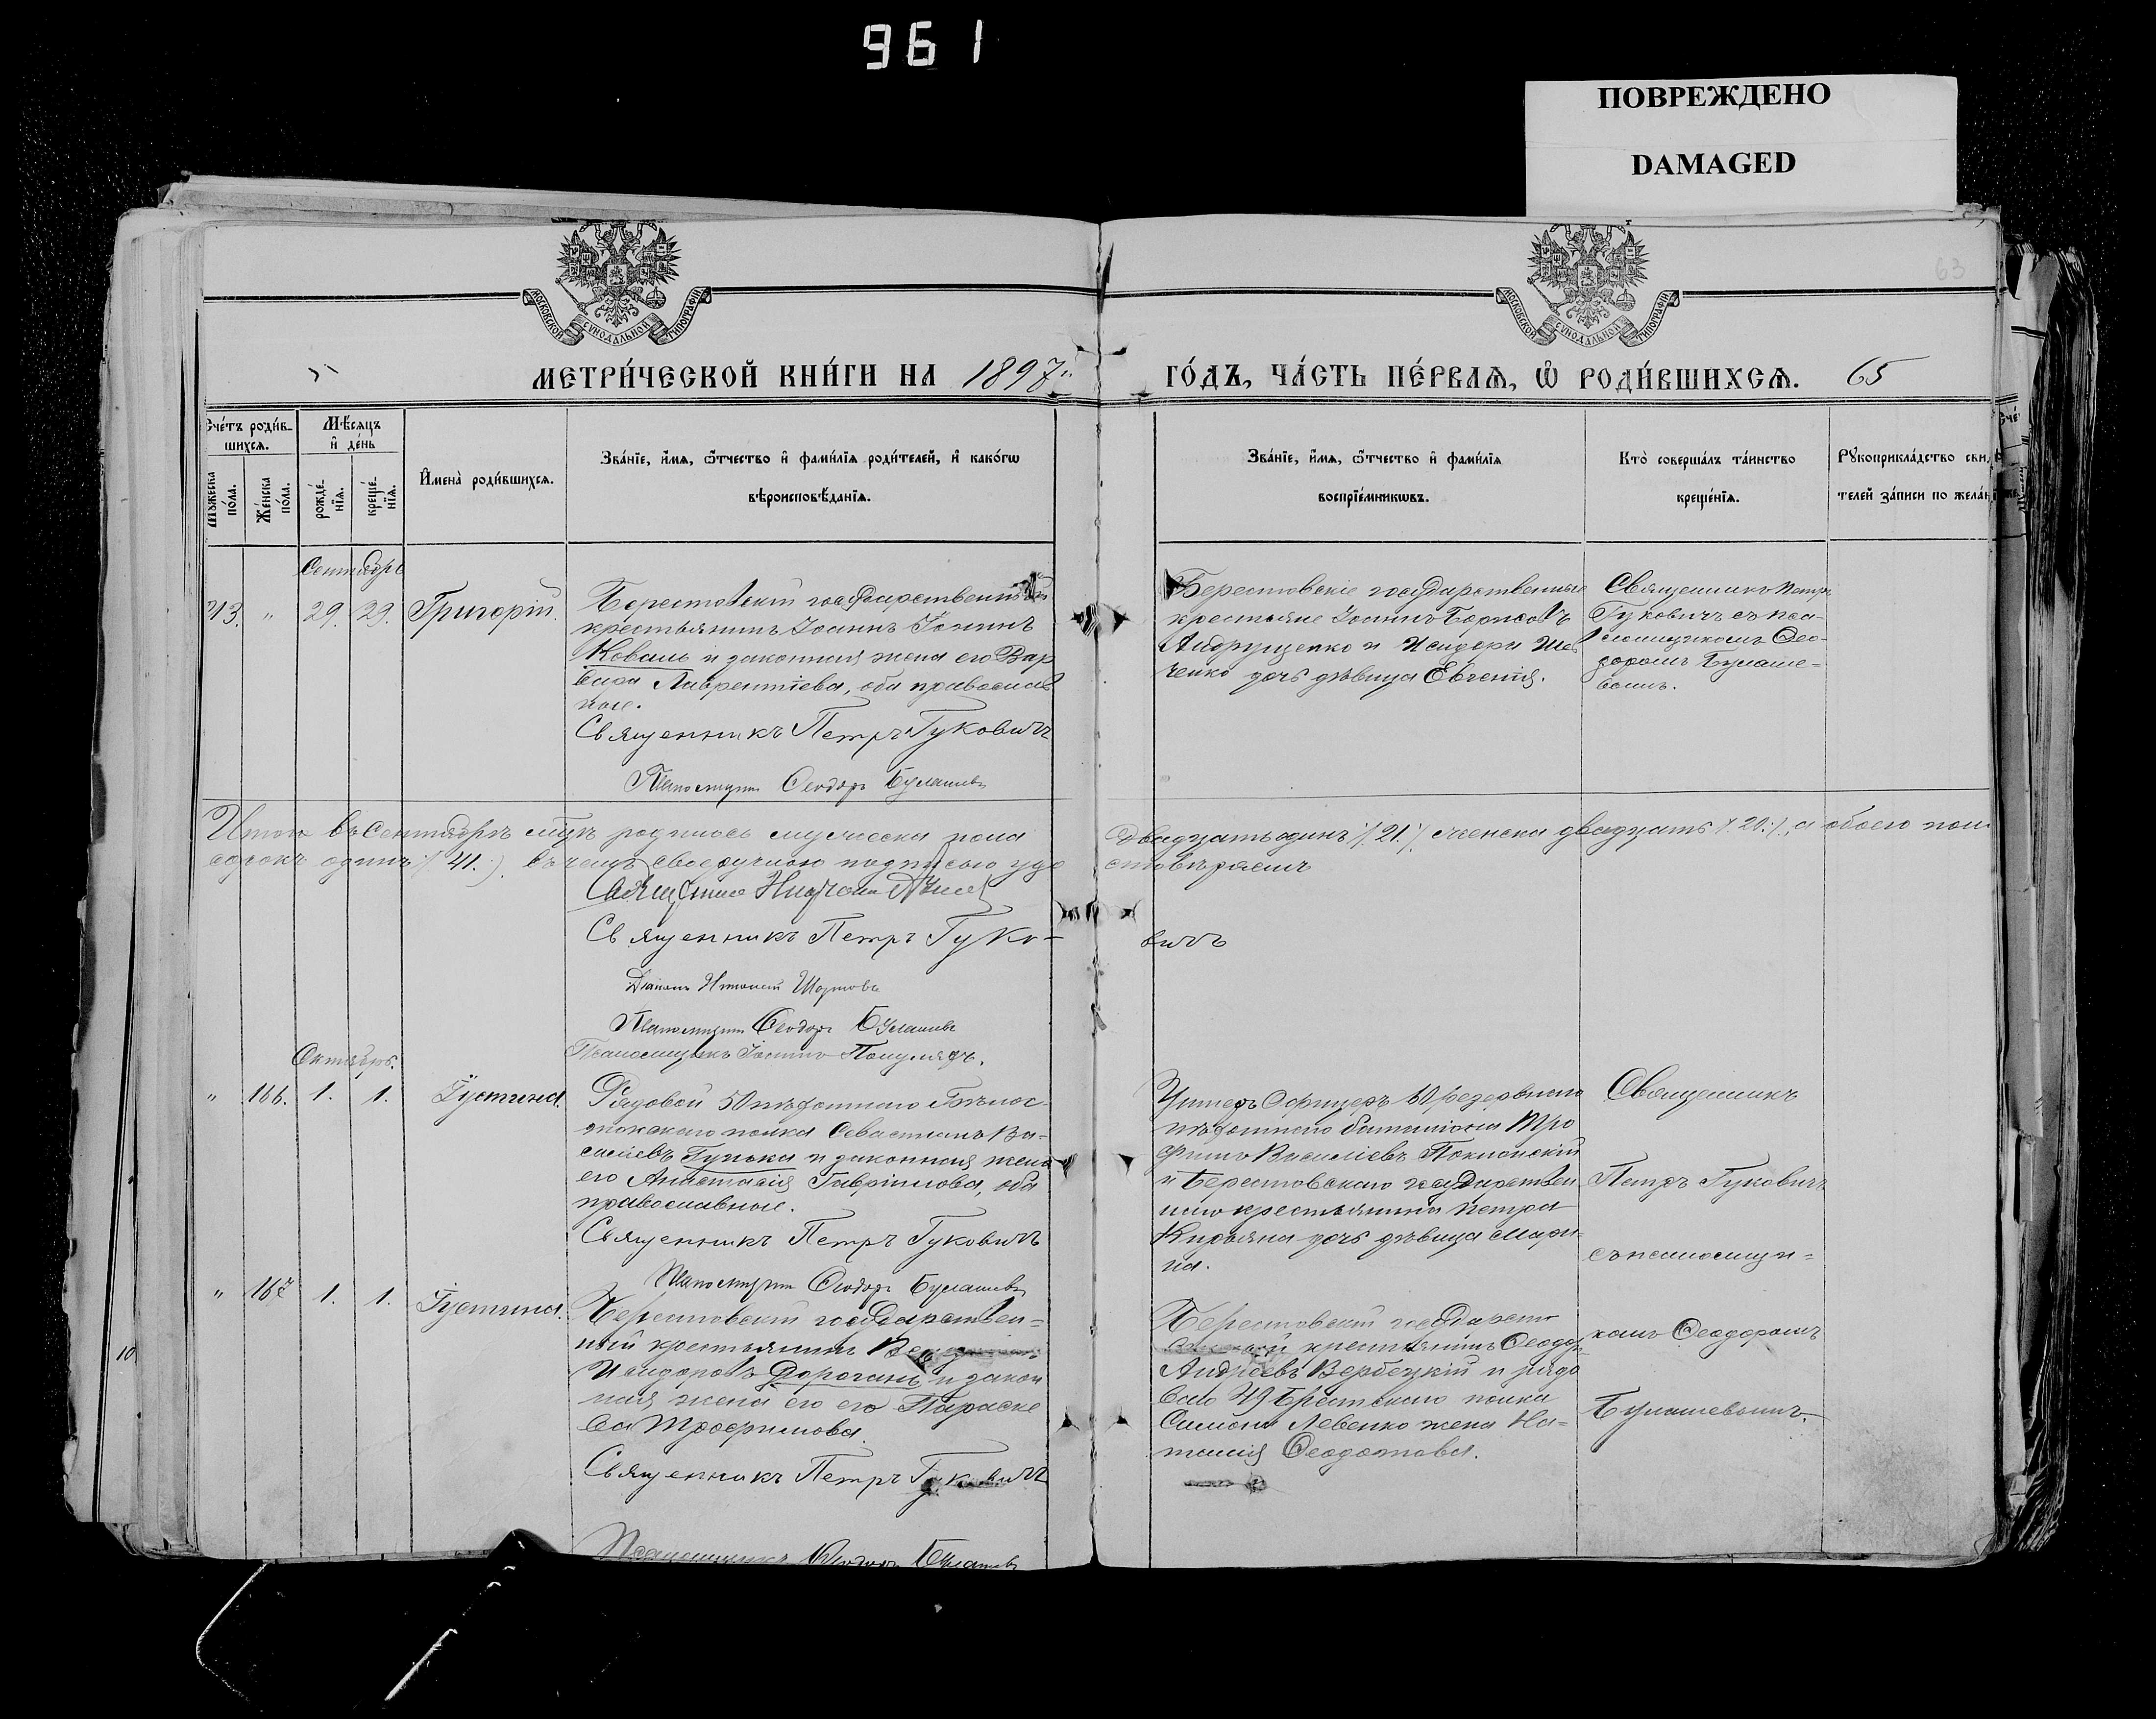 961
ПОВРЕЖДЕНО
DAMAGED
63
МОСКОВСКОЙ СѴНОДАЛЬНОЙ ТИПОГРАФІИ
МОСКОВСКОЙ СѴНОДАЛЬНОЙ ТИПОГРАФІИ
МЕТРИ́ЧЕСКОЙ КНИ́ГИ НА 1897
ГО́ДЪ, ЧА́СТЬ ПЕ́РВАѦ, Ѡ РОДИ́ВШИХСѦ. 65
Сче́тъ роди́в-
шихсѧ.
Мѣ́сѧцъ
и де́нь
Мꙋжеска по́ла.
Же́нска по́ла.
рожде́нїѧ.
креще́нїѧ.
И҆мена̀ роди́вшихсѧ.
Зва́нїе, и҆́мѧ, ѻ҆́тчество и҆ фами́лїѧ роди́телей, и҆ како́гѡ
вѣроисповѣ́данїѧ.
Зва́нїе, и҆́мѧ, ѻ҆́тчество и҆ фами́лїѧ
воспрїе́мникѡвъ.
Кто̀ соверша́лъ та́инство
креще́нїѧ.
Рꙋкоприкла́дство сви
телей за́писи по жела́н
Сентябрь
„ 29. 29. Григорій.
Берестовскій государственный
крестьянинъ Іоаннъ
Коваль и законная жена его Вар
вара Лаврентіева, оба православ
ные.
Священникъ Петръ Гуковичъ
Псаломщикъ Ѳеодоръ Булашевъ
Берестовскіе государственные
крестьяне Іоаннъ Борисовъ
Андрущенко и Исидора Шев
ченко дочь дѣвица Евгенія.
Священникъ Петръ
Гуковичъ съ пса-
ломщикомъ Ѳео-
доромъ Булаше-
вымъ.
Итого въ Сентябрѣ мцѣ родилось мужеска пола
двадцать одинъ /. 21. /. женска двадцать /. 20. /., а обоего пола
сорокъ одинъ /. 41. /. въ чемъ своеручною подписью удо
стовѣряемъ
Священникъ
Священникъ Петръ Гуко-
вичъ
Діаконъ
Псаломщикъ Ѳеодоръ Булашевъ
Псаломщикъ
Октябрь.
„ 166. 1. 1. Іустина.
Рядовой 50 пѣхотнаго Бѣлос-
токскаго полка Севастіанъ Ва-
силіевъ Гунька и законная жена
его Анастасія Гавріилова, оба
православные.
Священникъ Петръ Гуковичъ
Псаломщикъ Ѳеодоръ Булашевъ
Унтеръ Офицеръ 60 резервнаго
пѣхотнаго баталіона Тро
фимъ Василіевъ
и Берестовскаго государствен
наго крестьянина Петра
Кирьяна дочь дѣвица Мари-
на.
Священникъ
Петръ Гуковичъ
съ псаломщи-
комъ Ѳеодоромъ
Булашевымъ.
„ 167 1. 1. Іустина.
Берестовскій государствен-
ный крестьянинъ
Исидоровъ Дорогань и закон
ная жена его его Параске
ва Трофимова.
Священникъ Петръ Гуковичъ
Псаломщикъ Ѳеодоръ Булашевъ
Берестовскій государст
венный крестьянинъ Ѳеодоръ
Андреевъ Вербецкій и рядо
ваго 49 Брестскаго полка
Самсона Левенко жена На-
талія Ѳеодотова.
10